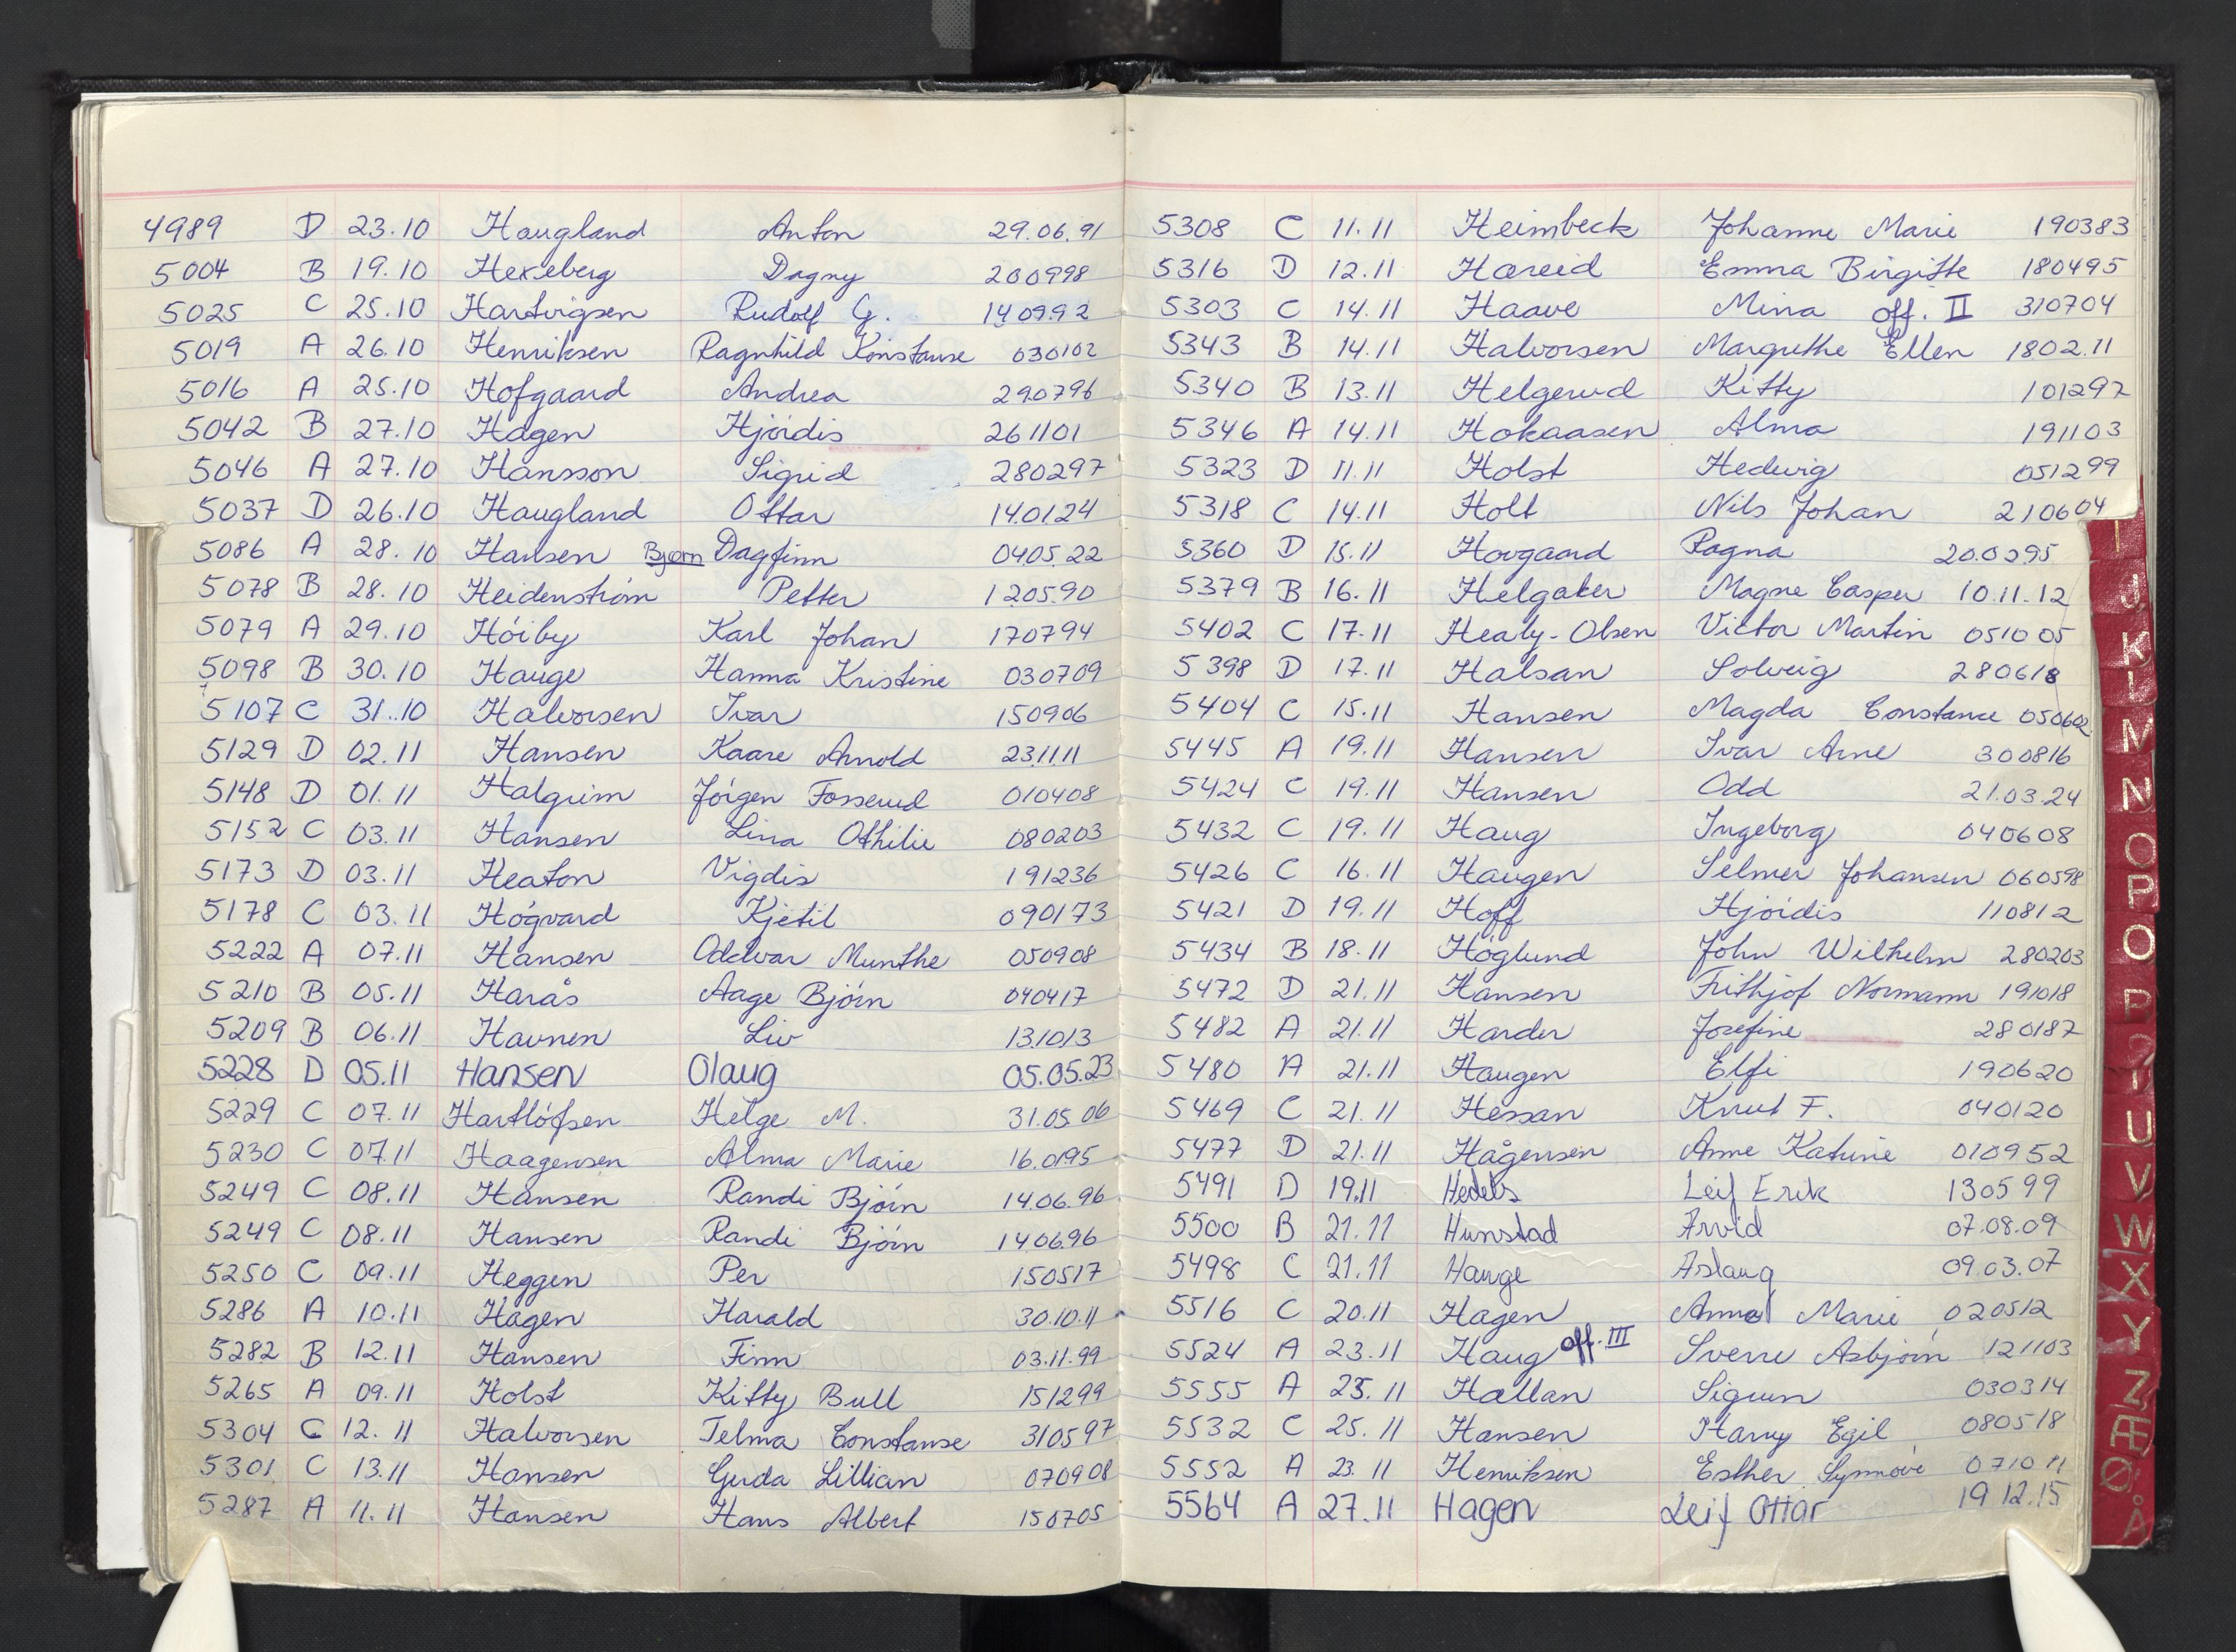 4989 D 23.10 Haugland Anton 29.06.91
5004 B 19.10 Hexeberg Dagny 200998
5025 C 25.10 Hartvigsen Rudolf G. 140992
5019 A 26.10 Henriksen Ragnhild Konstanse 030102
5016 A 25.10 Hofgaard Andrea 290796
5042 B 27.10 Hagen Hjördis 261101
5046 A 27.10 Hansson Sigrid 280297
5037 D 26.10 Haugland Ottar 140124
5086 A 28.10 Hansen Bjørn Dagfinn 0405.22
5078 B 28.10 Heidenström Petter 120590
5079 A 29.10 Hóiby Karl Johan 170794
5098 B 30.10 Hauge Hanna Kristine 030709
5107 C 31.10 Halvorsen Ivar 150906
5129 D 02.11 Hansen Kaare Arnold 231111
5148 D 01.11 Halgrim Jórgen Fosserud 010408
5152 C 03.11 Hansen Lina Othilie 080203
5173 D 03.11 Heaton Vigdis 191236
5178 C 03.11 Hógvard Kjetil 090173
5222 A 07.11 Hansen Oddvar Munthe 050908
5210 B 05.11 Harås Aage Bjórn 040417
5209 B 06.11 Havnen Liv 131013
5228 D 05.11 Hansen Olaug 05.05.23
5229 C 07.11 Hartlófsen Helge M. 31.05.06
5230 C 07.11 Haagensen Alma Marie 16.0195
5249 C 08.11 Hansen Randi Bjórn 14.06.96
5249 C 08.11 Hansen Randi Bjórn 140696
5250 C 09.11 Heggen Per 150517
5286 A 10.11 Hagen Harald 30.10.11
5282 B 12.11 Hansen Finn 03.11.99
5265 A 09.11 Holst Kitty Bull 151299
5304 C 12.11 Halvorsen Telma Constanse 310597
5301 C 13.11 Hansen Gerda Lillian 070908
5287 A 11.11 Hansen Hans Albert 150705
5308 C 11.11 Heimbeck Johanne Marie 190383
5316 D 12.11 Hareid Emma Birgitte 180495
5303 C 14.11 Haave Mina off. II 310704
5343 B 14.11 Halvorsen Margrethe Ellen 1802.11
5340 B 13.11 Helgerud Kitty 101297
5346 A 14.11 Hokaasen Alma 191103
5323 D 11.11 Holst Hedwig 051299
5318 C 14.11 Holt Nils Johan 210604
5360 D 15.11 Hovgaard Ragna 20.0295
5379 B 16.11 Helgaker Magne Casper 10.11.12
5402 C 17.11 Healy-Olsen Victor Martin 051005
5398 D 17.11 Halsan Solveig 280618
5404 C 15.11 Hansen Magda Constance 050602
5445 A 19.11 Hansen Ivar Arne 300816
5424 C 19.11 Hansen Odd 21.03.24
5432 C 19.11 Haug Ingeborg 040608
5426 C 16.11 Haugen Selmer Johansen 060598
5421 D 19.11 Hoff Hjórdis 110812
5434 B 18.11 Höglund John Wilhelm 280203
5472 D 21.11 Hansen Frithjof Normann 191018
5482 A 21.11 Harder Josefine 280187
5480 A 21.11 Haugen Elfi 190620
5469 C 21.11 Hessan Knut F. 040120
5477 D 21.11 Hågensen Anne Katrine 010952
5491 D 19.11 Hedels Leif Erik 130599
5500 B 21.11 Hunstad Arvid 07.08.09
5498 C 21.11 Hauge Aslaug 09.03.07
5516 C 20.11 Hagen Anna Marie 020512
5524 A 23.11 Haug off. III Sverre Asbjörn 121103
5555 A 25.11 Hallan Sigrun 030314
5532 C 25.11 Hansen Harry Egil 080518
5552 A 23.11 Henriksen Esther Synnöve 071011
5564 A 27.11 Hagen Leif Ottar 19 12.15
I
J
K
L
M
N
O
P
U
V
W
X
Y
Z
Æ
Ø
Å